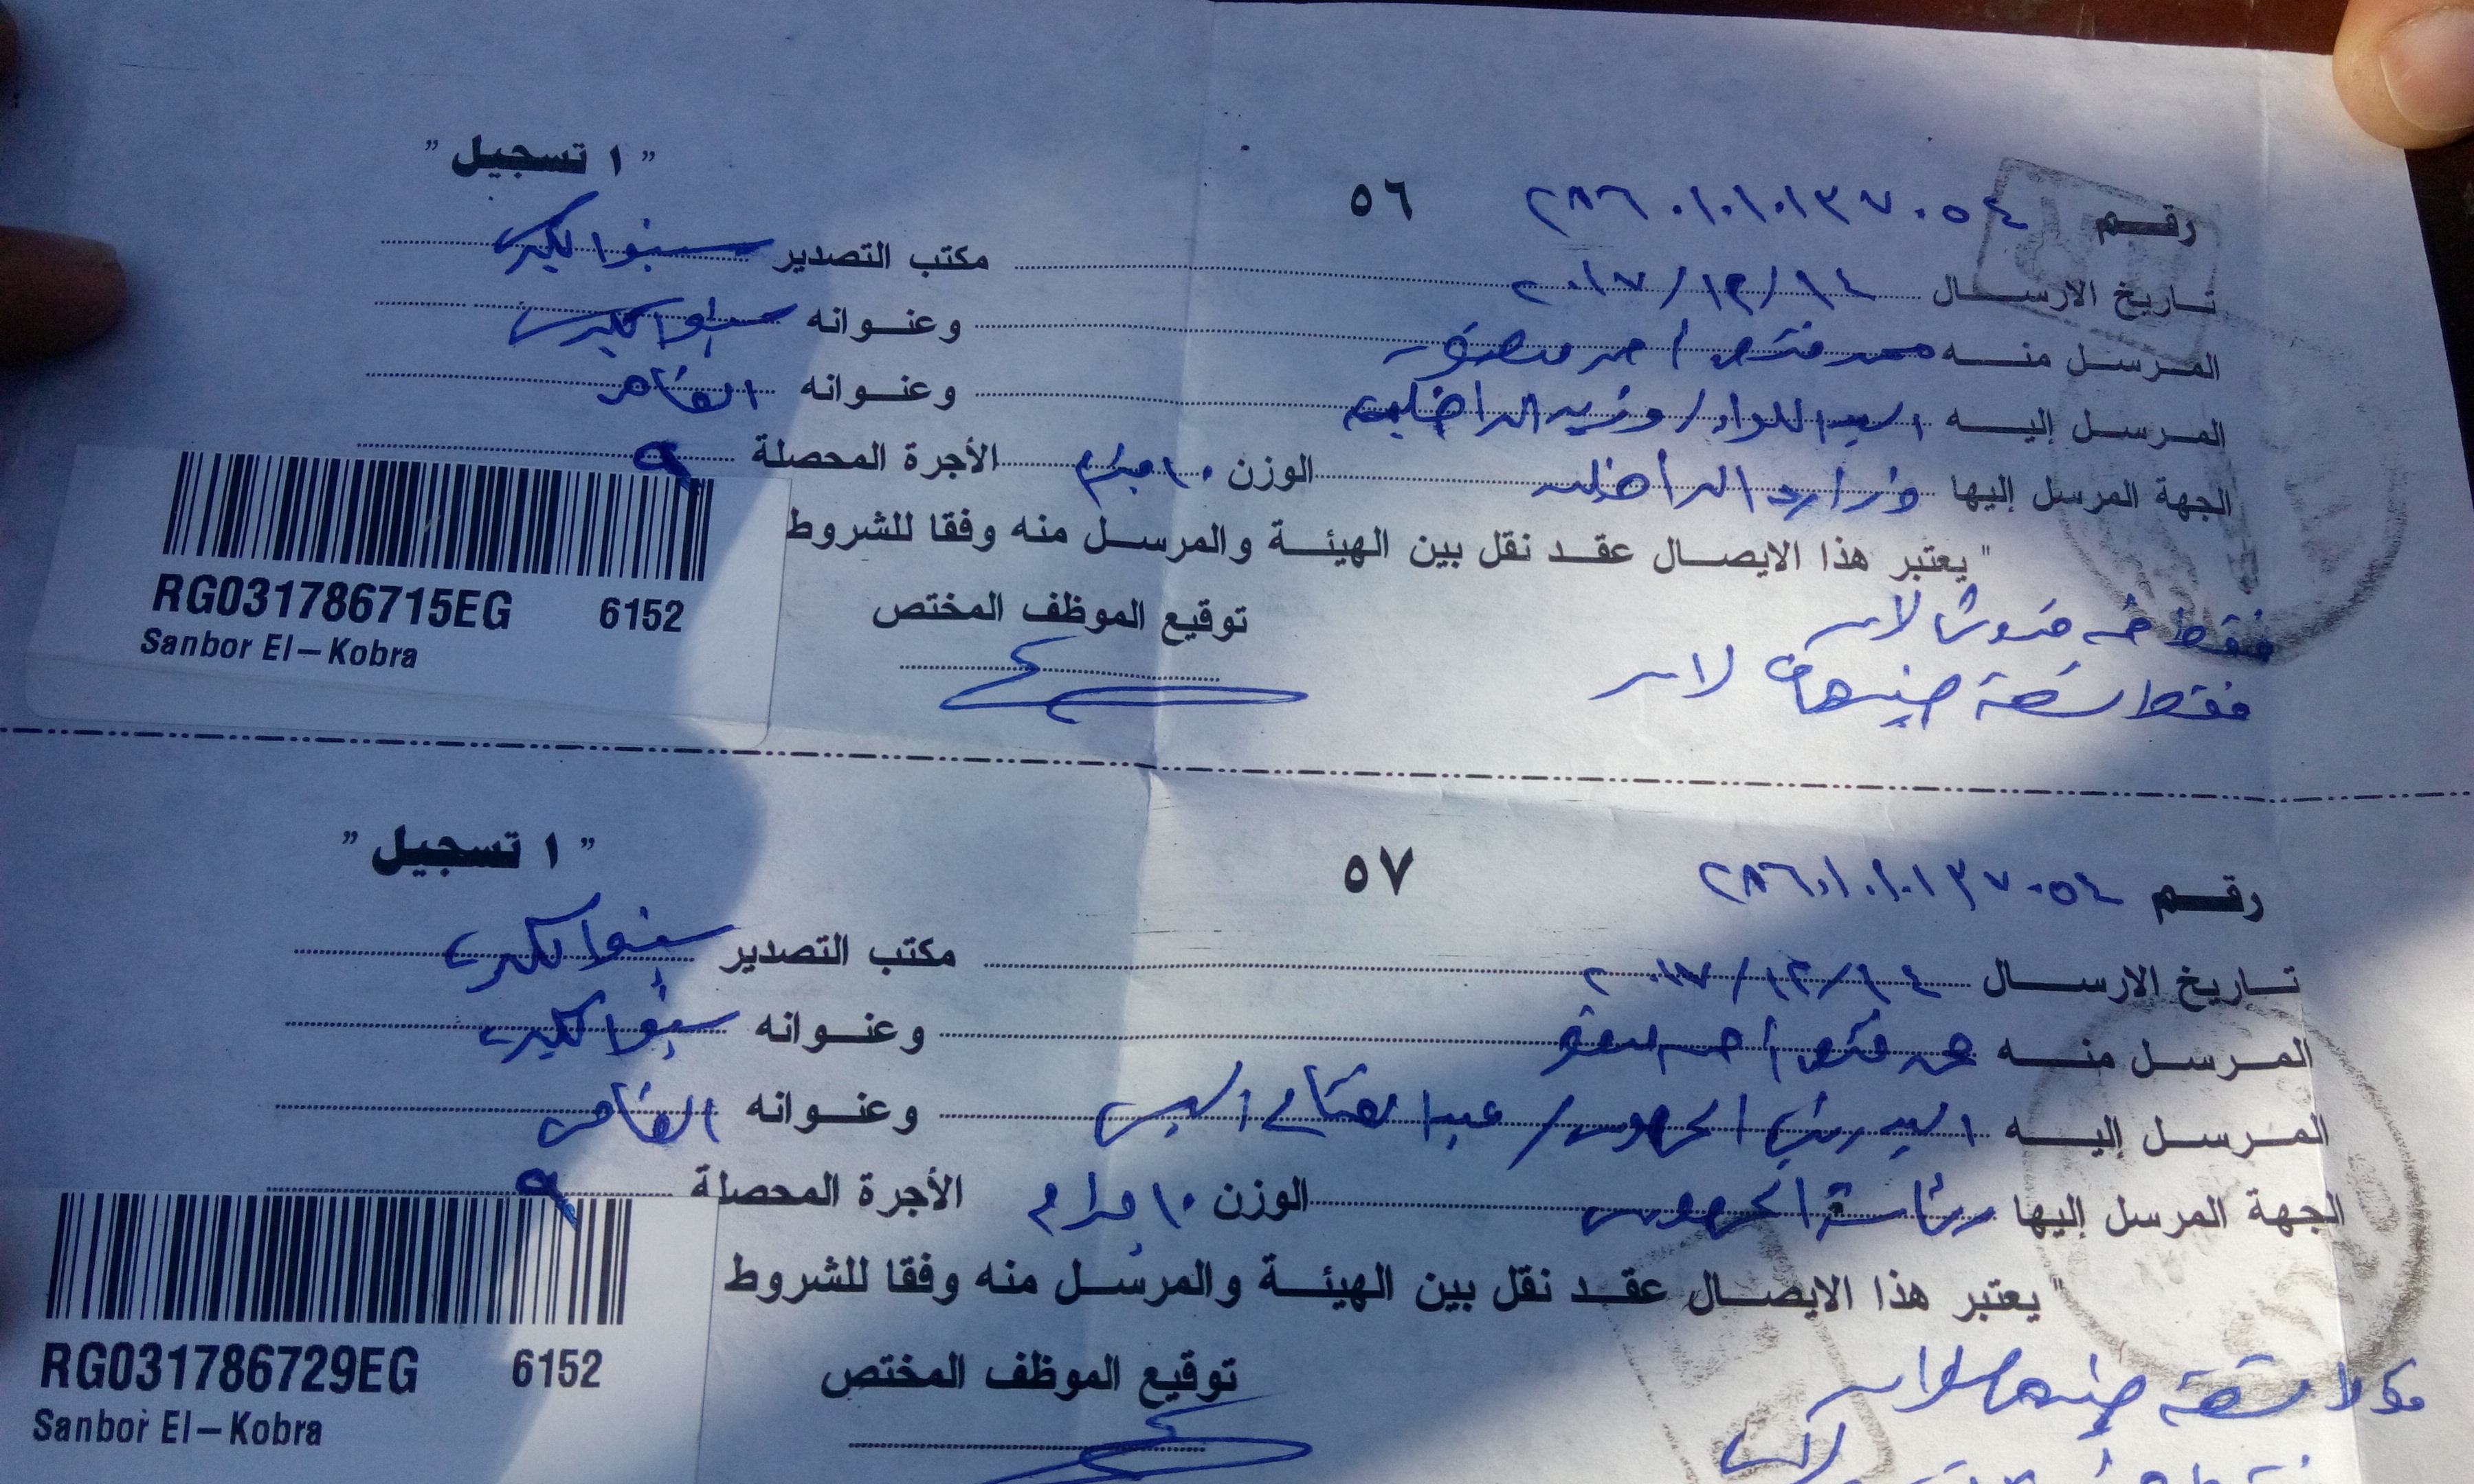 " ١ تسجيل "
رقم ٢٨٦٠١٠١٠١٣٧٠٥٤ ٥٦
مكتب التصدير سنبو الكبرى
تاريخ الارسال ٢٠١٧/١٢/١٤
وعنوانه سنبو الكبرى
المرسل منه محمد فتحى احمد منصور
وعنوانه القاهرة
المرسل إليه السيد اللواء / وزير الداخلية
الجهة المرسل إليها وزارة الداخلية الوزن ١٠ جرام الأجرة المحصلة ٩
" يعتبر هذا الايصال عقد نقل بين الهيئة والمرسل منه وفقا للشروط
RG031786715EG 6152
Sanbor El-Kobra
توقيع الموظف المختص
فقط قروش لاغير
فقط تسعة جنيهات لاغير
" ١ تسجيل "
رقم ٢٨٦٠١٠١٠١٣٧٠٥٤ ٥٧
مكتب التصدير سنبو الكبرى
تاريخ الارسال ٢٠١٧/١٢/١٤
وعنوانه سنبو الكبرى
المرسل منه محمد فتحى احمد
وعنوانه القاهرة
المرسل إليه السيد رئيس الجمهورية / عبد الفتاح السيسى
الجهة المرسل إليها رئاسة الجمهورية الوزن ١٠ جرام الأجرة المحصلة ٩
" يعتبر هذا الايصال عقد نقل بين الهيئة والمرسل منه وفقا للشروط
RG031786729EG 6152
Sanbor El-Kobra
توقيع الموظف المختص
تسعة جنيهات لاغير